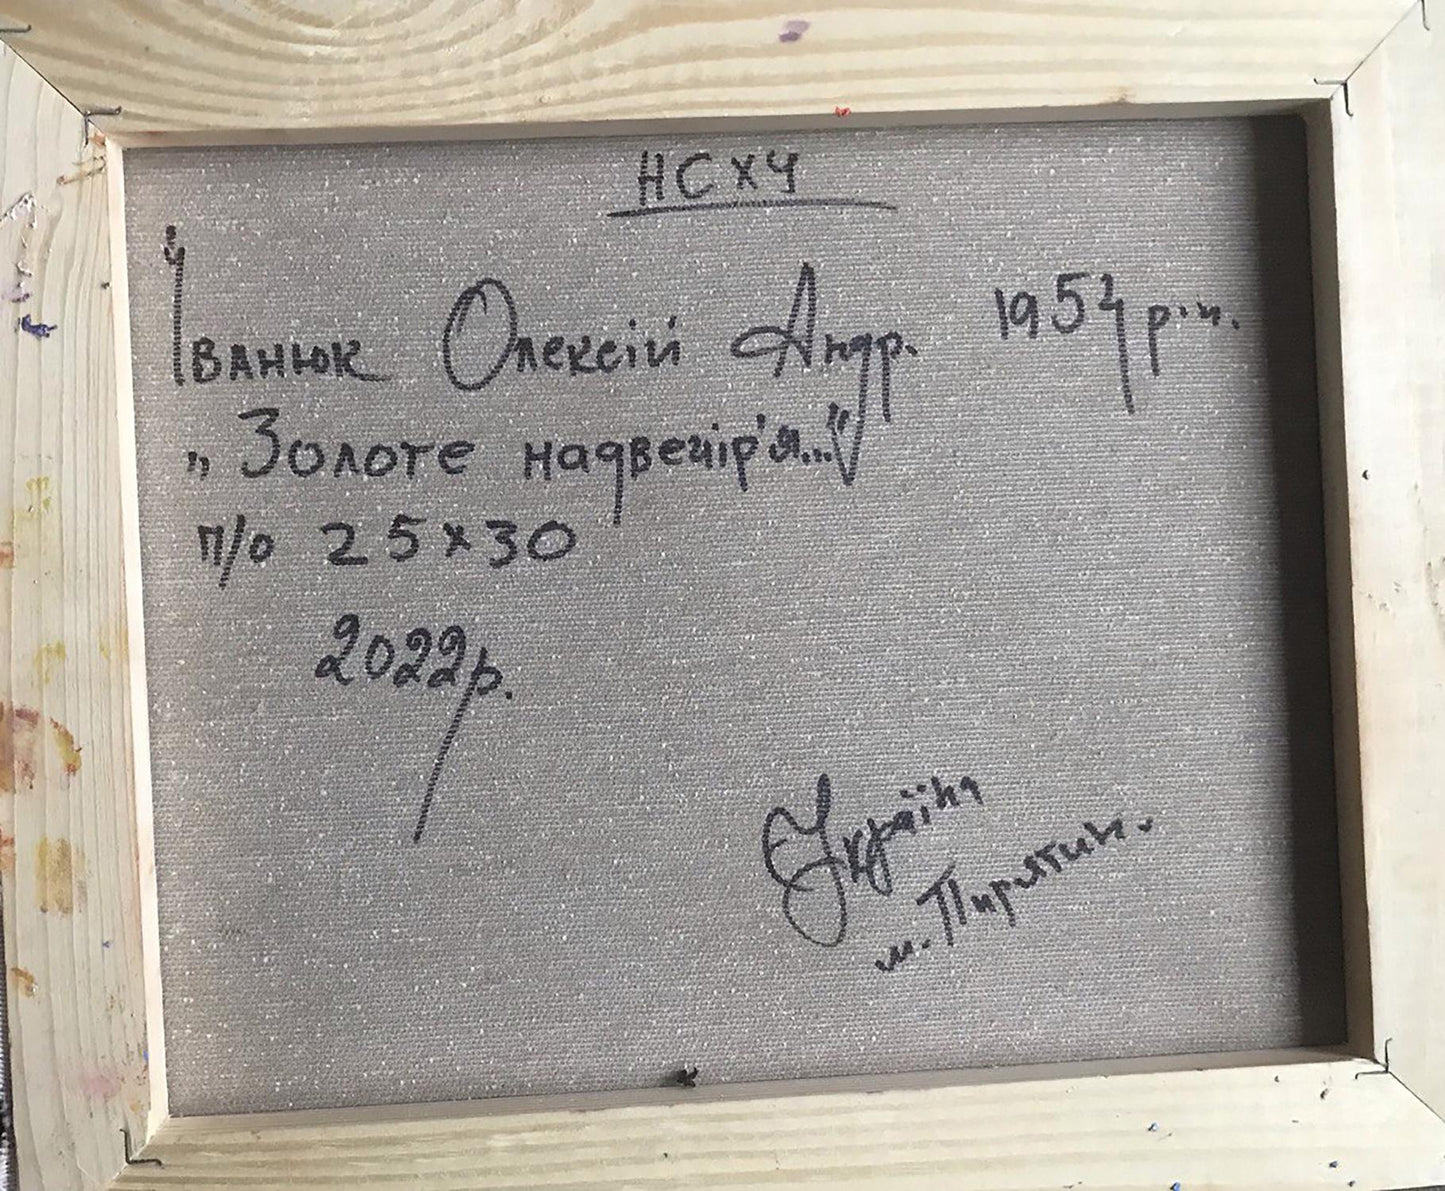 НСХУ
Іванюк Олексій Андр. 1954 р.н.
„Золоте надвечір'я..."
п/о 25х30
2022р.
Україна
м. Пирятин.